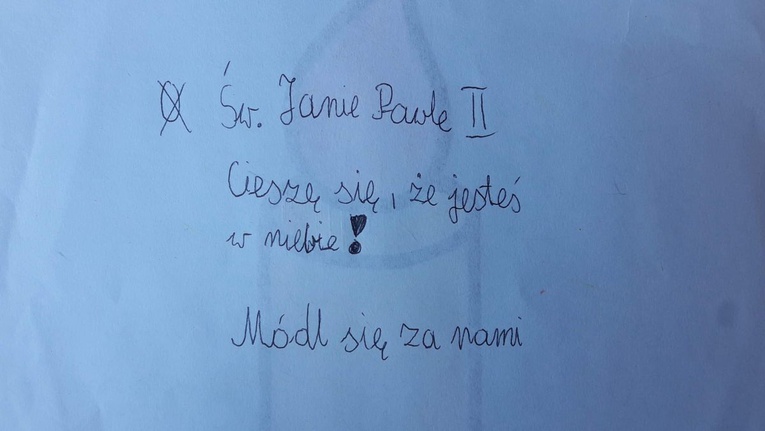 Św. Janie Pawle II
Cieszę się, że jesteś
w niebie!
Módl się za nami